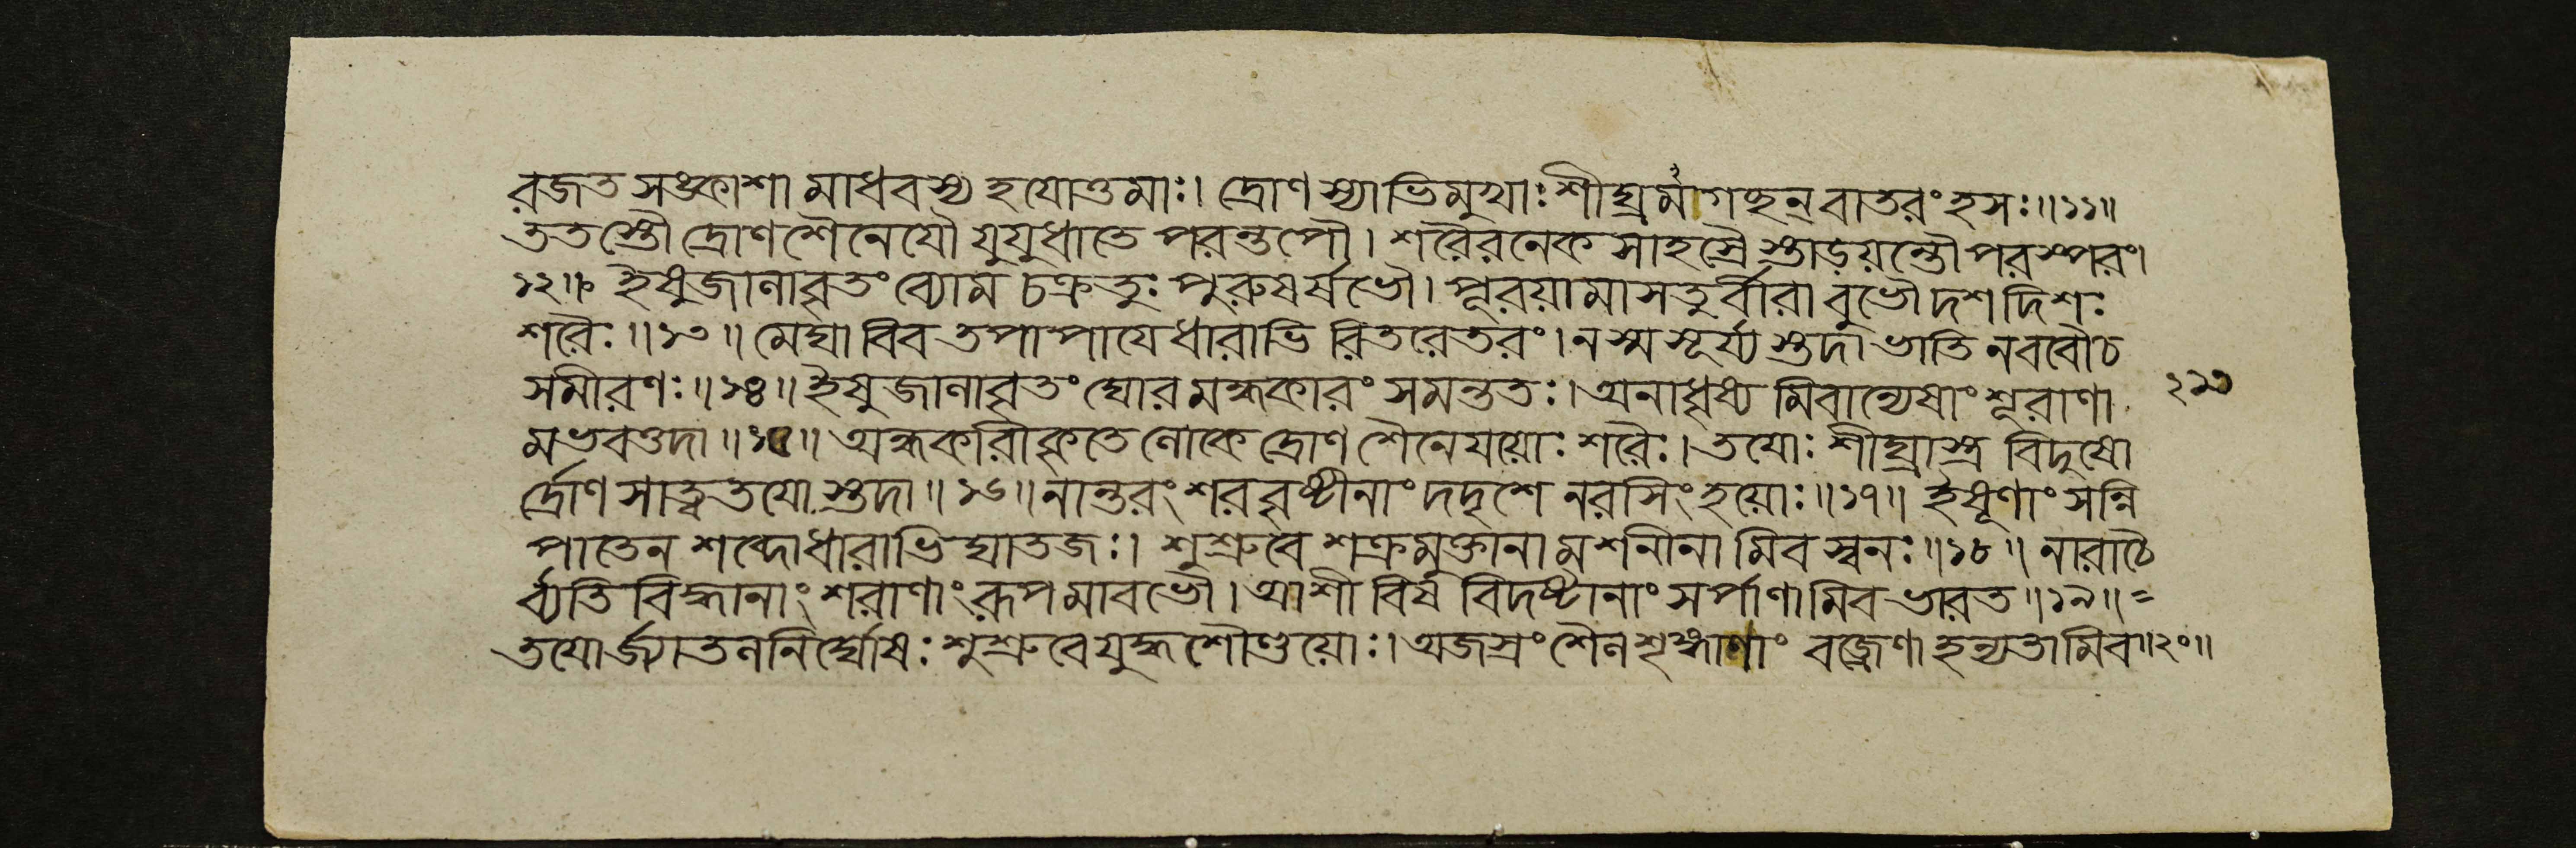 রজতসঙ্কাশা মাধবস্য হযোত্তমাঃ। দ্রোণস্যাভিমুখাঃ শীঘ্রমাগচ্ছন্ বাতরংহসঃ॥১১॥
ততস্তৌ দ্রোণশৈনেযৌ যুযুধাতে পরন্তপৌ। শরৈরনেকসাহস্রৈস্তাড়য়ন্তৌ পরস্পরং।
১২॥ ইষুজালাবৃতং ব্যোম চক্রতুঃ পুরুষর্ষভৌ। পূরয়ামাসতুর্ব্বীরাবুভৌ দশ দিশঃ
শরৈঃ॥১৩॥ মেঘাবিব তপাপাযে ধারাভিরিতরেতরং। ন স্ম সূর্য্যস্তদা ভাতি ন ববৌ চ
সমীরণঃ॥১৪॥ ইষুজালাবৃতং ঘোরমন্ধকারং সমন্ততঃ। অনাধৃষ্যমিবান্যেষাং শূরাণা
মভবত্তদা॥১৫॥ অন্ধকারীকৃতে লোকে দ্রোণশৈনেযয়োঃ শরৈঃ। তযোঃ শীঘ্রাস্ত্রবিদুষো
র্দ্রোণসাত্বতযোস্তদা॥১৬॥ নান্তরং শরবৃষ্টীনাং দদৃশে নরসিংহয়োঃ॥১৭॥ ইষূণাং সন্নি
পাতেন শব্দো ধারাভিঘাতজঃ। শুশ্রুবে শক্রমুক্তানামশনীনামিব স্বনঃ॥১৮॥ নারাচৈ
র্ব্যতিবিদ্ধানাং শরাণাং রূপমাবভৌ। আশীবিষবিদষ্টানাং সর্পাণামিব ভারত॥১৯॥=
তযোর্জ্যাতলনির্ঘোষঃ শুশ্রুবে যুদ্ধশৌণ্ডয়োঃ। অজস্রং শৈলশৃঙ্গাণাং বজ্রেণাহন্যতামিব॥২০॥
২১৩